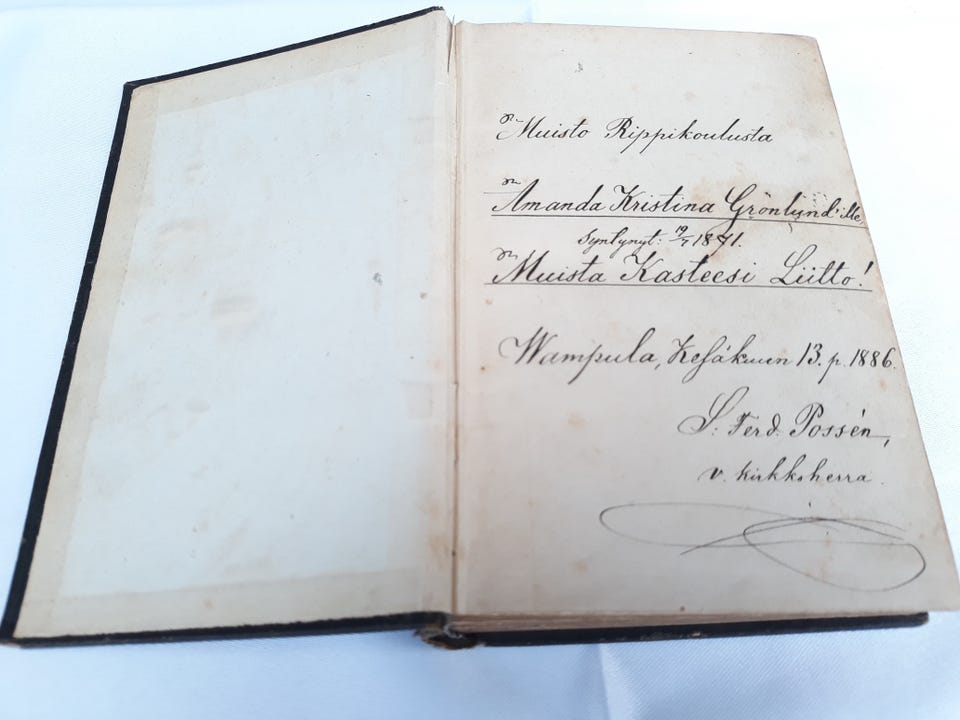 Muisto Rippikoulusta
Amanda Kristina Grönlund'ille
Syntynyt: 19/7 1871.
Muista Kasteesi Liitto!
Wampula, Kesäkuun 13. p. 1886.
S: Ferd. Possén,
v. kirkkoherra.